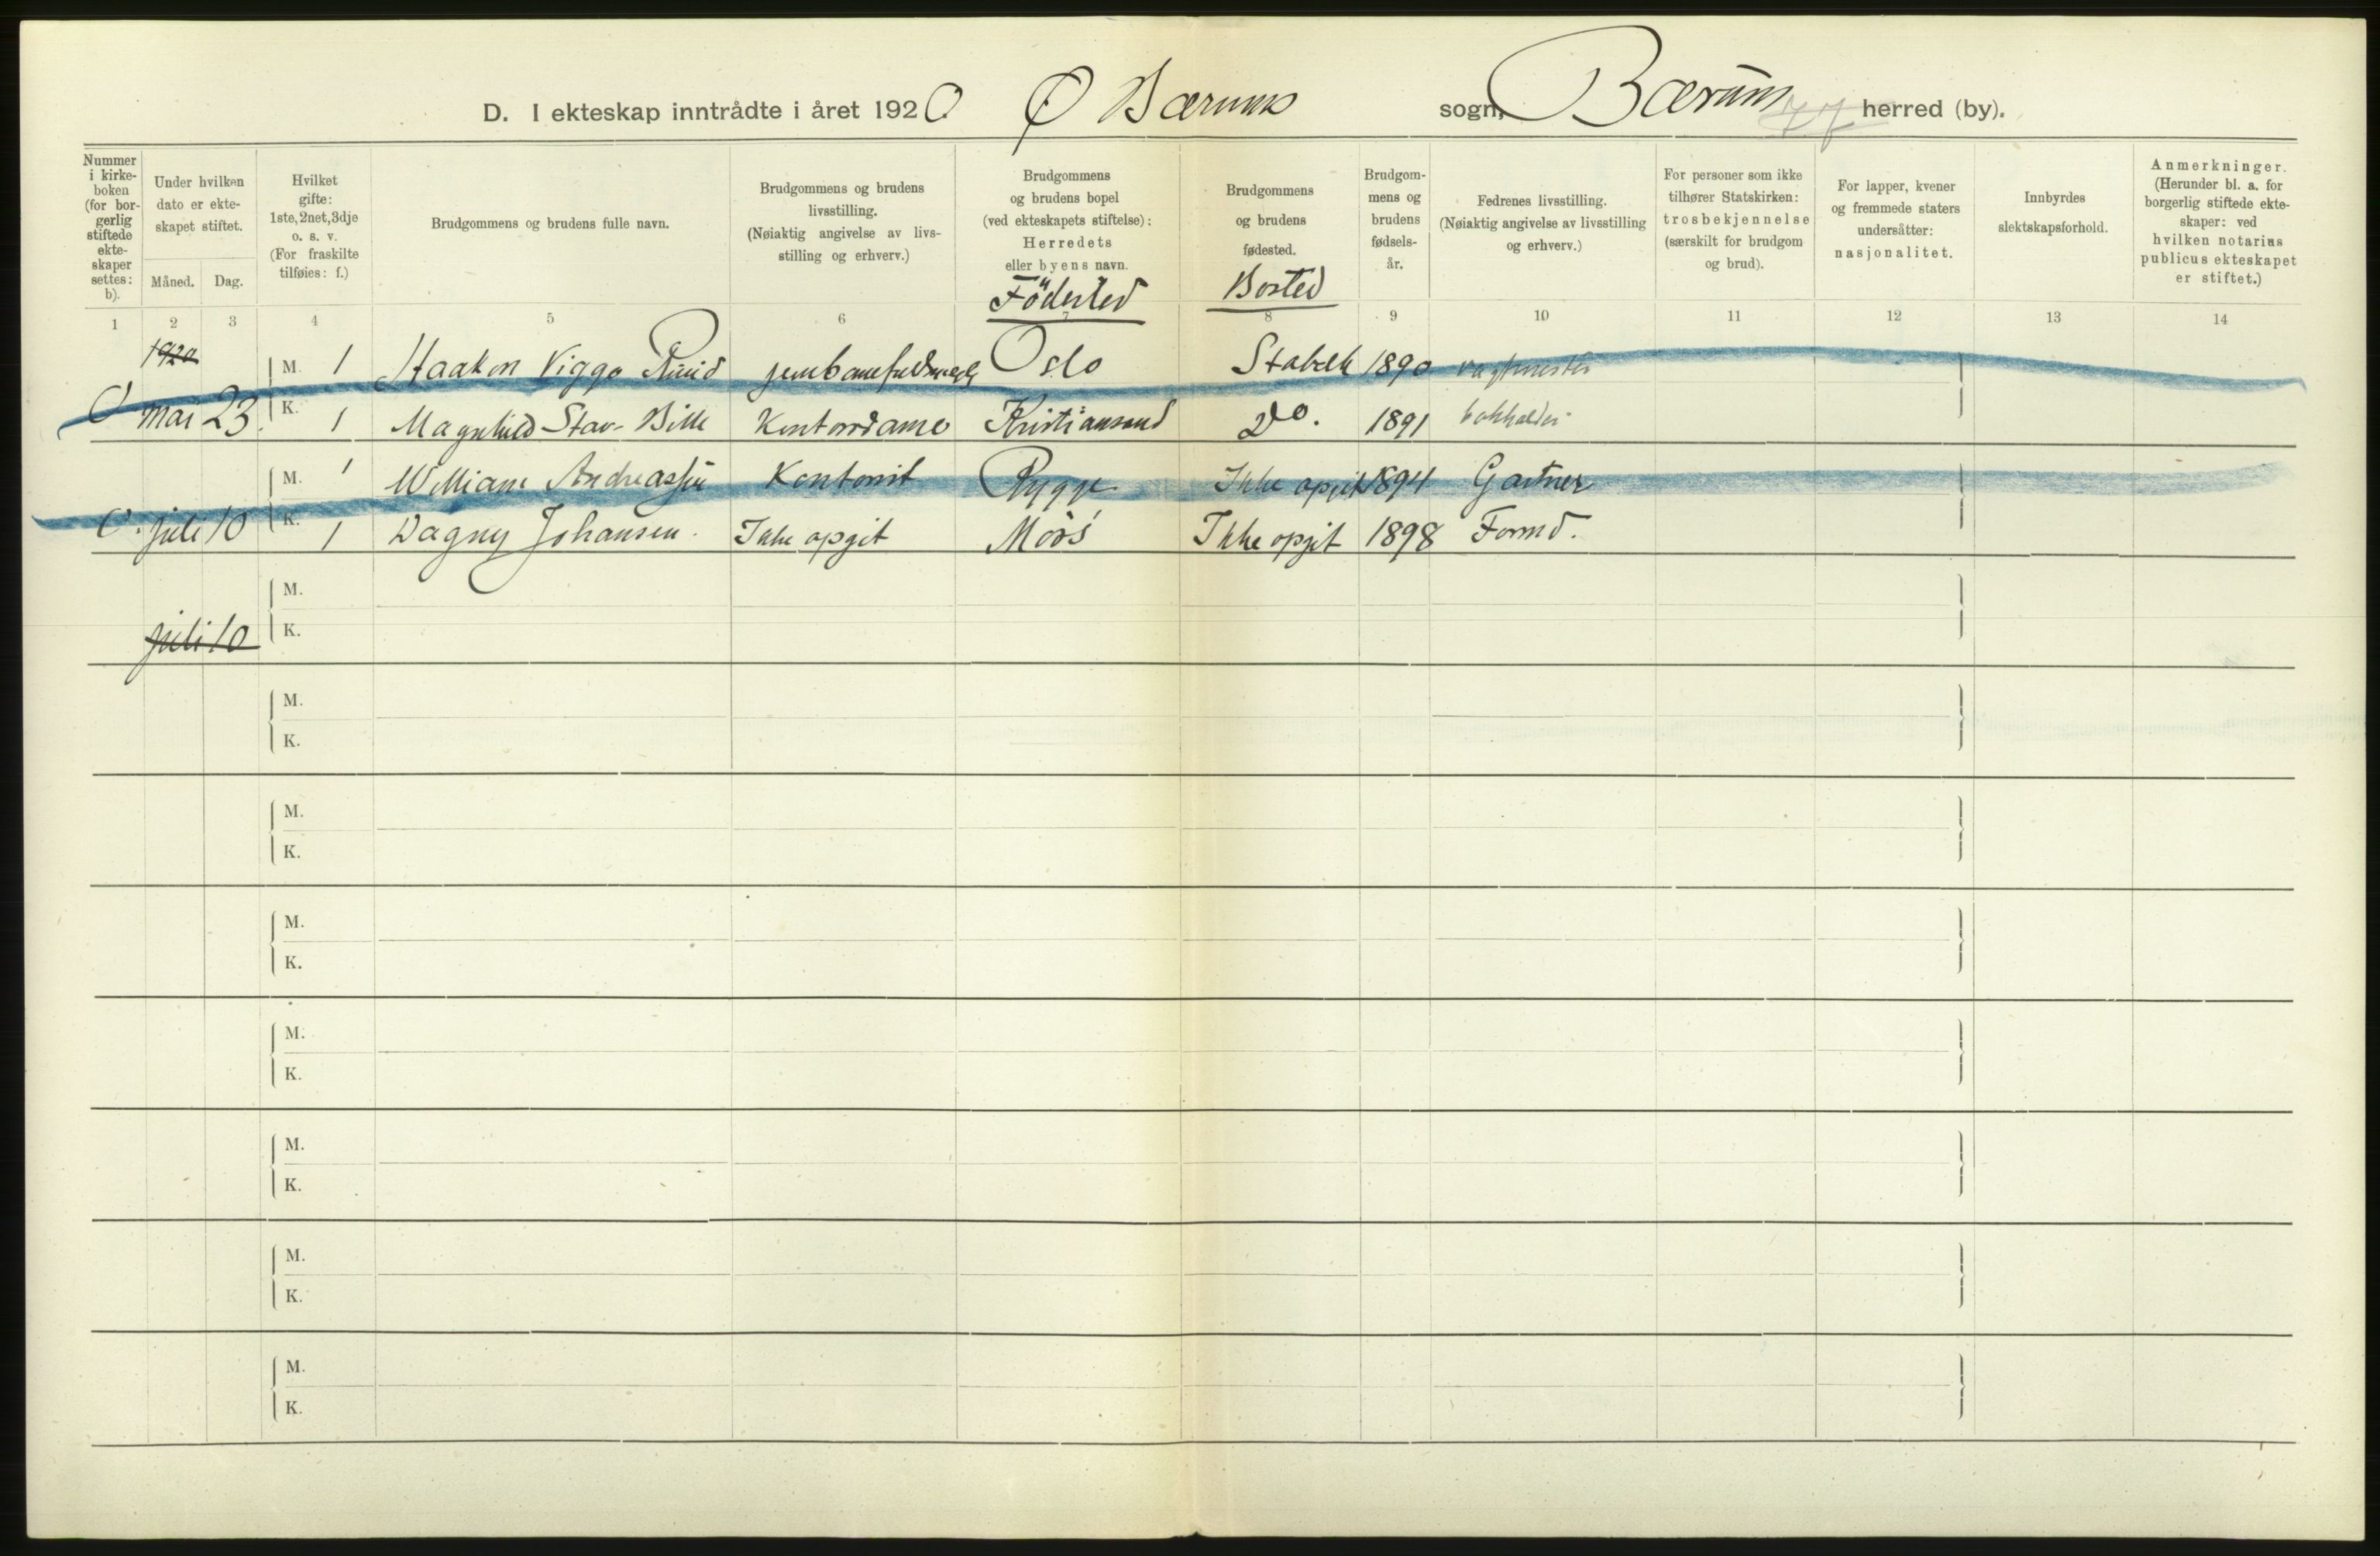 D. I ekteskap inntrådte i året 1920 Ø Bærums sogn, Bærum herred (by).
Nummer i kirke- boken (for bor- gerlig stiftede ekte- skaper settes: b).
Under hvilken dato er ekte- skapet stiftet.
Måned. Dag.
Hvilket gifte: 1ste, 2net, 3dje o. s. v. (For fraskilte tilføies: f.)
Brudgommens og brudens fulle navn.
Brudgommens og brudens livsstilling. (Nøiaktig angivelse av livs- stilling og erhverv.)
Brudgommens og brudens bopel (ved ekteskapets stiftelse): Herredets eller byens navn.
Födested
Brudgommens og brudens fødested.
Bosted
Brudgom- mens og brudens fødsels- år.
Fedrenes livsstilling. (Nøiaktig angivelse av livsstilling og erhverv.)
For personer som ikke tilhører Statskirken: trosbekjennelse (særskilt for brudgom og brud).
For lapper, kvener og fremmede staters undersåtter: nasjonalitet.
Innbyrdes slektskapsforhold.
Anmerkninger. (Herunder bl. a. for borgerlig stiftede ekte- skaper: ved hvilken notarius publicus ekteskapet er stiftet.)
1 2 3 4 5 6 7 8 9 10 11 12 13 14
1920
M. 1 Haakon Viggo Ruud Oslo Stabekk 1890
mai 23. K. 1 Magnhild Stav- Bille Kontordame Kristiansand Do. 1891 bokholder
M. 1 William Andreassen Kontorist Rygge Ikke opgit 1894 Gartner
juli 10 K. 1 Dagny Johansen. Ikke opgit Moss Ikke opgit 1898 Formd.
M.
juli 10 K.
M.
K.
M.
K.
M.
K.
M.
K.
M.
K.
M.
K.
M.
K.